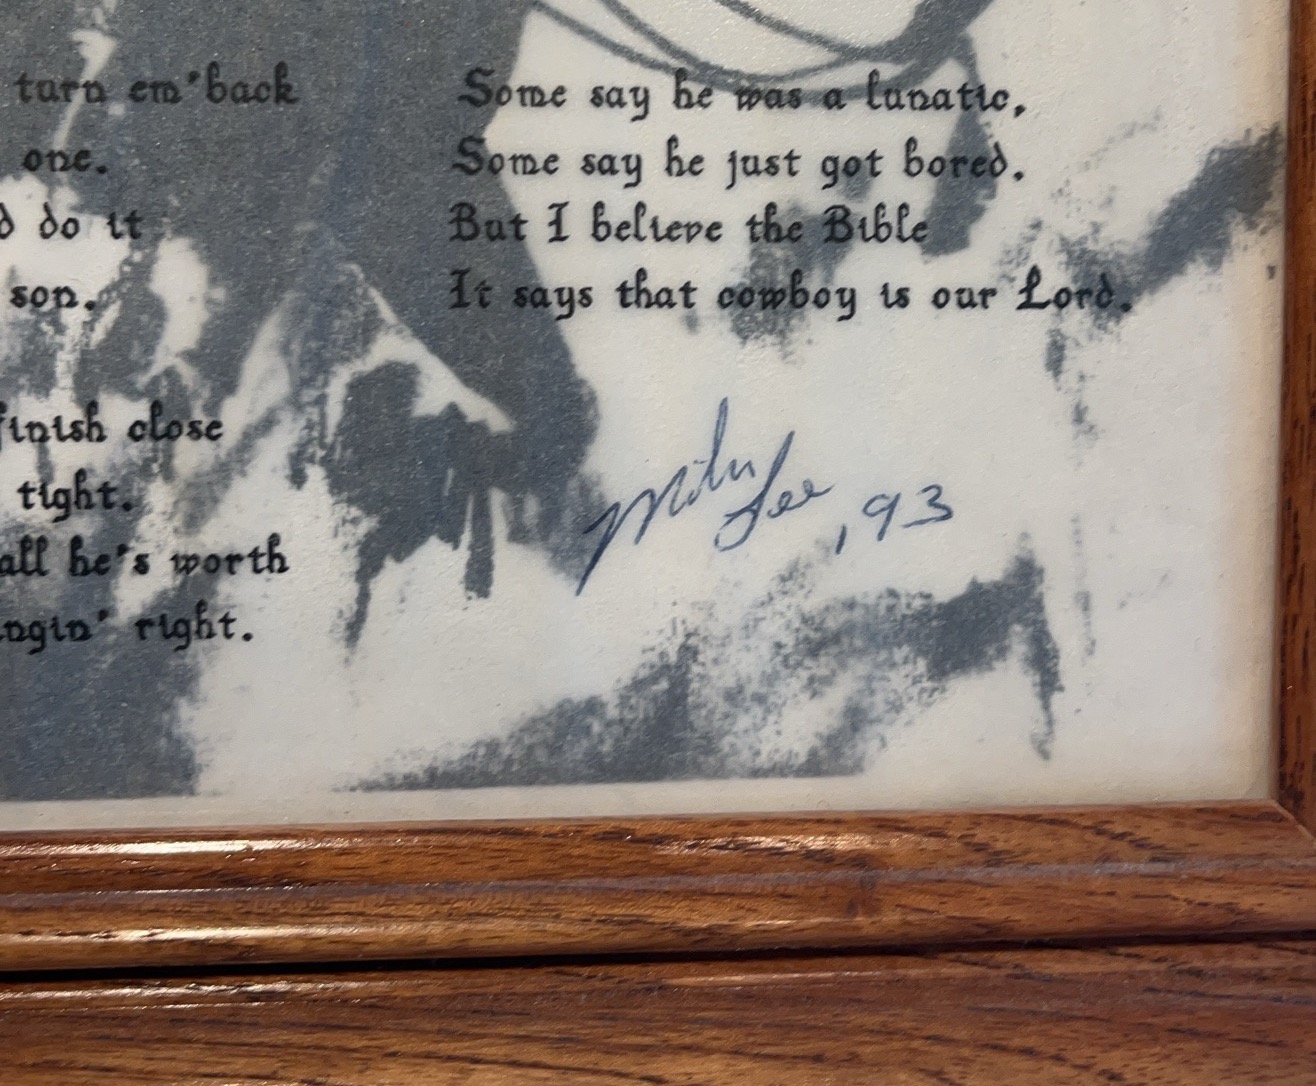 turn em' back
one.
do it
son.
finish close
tight.
all he's worth
right.
Some say he was a lunatic,
Some say he just got bored.
But I believe the Bible
It says that cowboy is our Lord.
Lee, 93